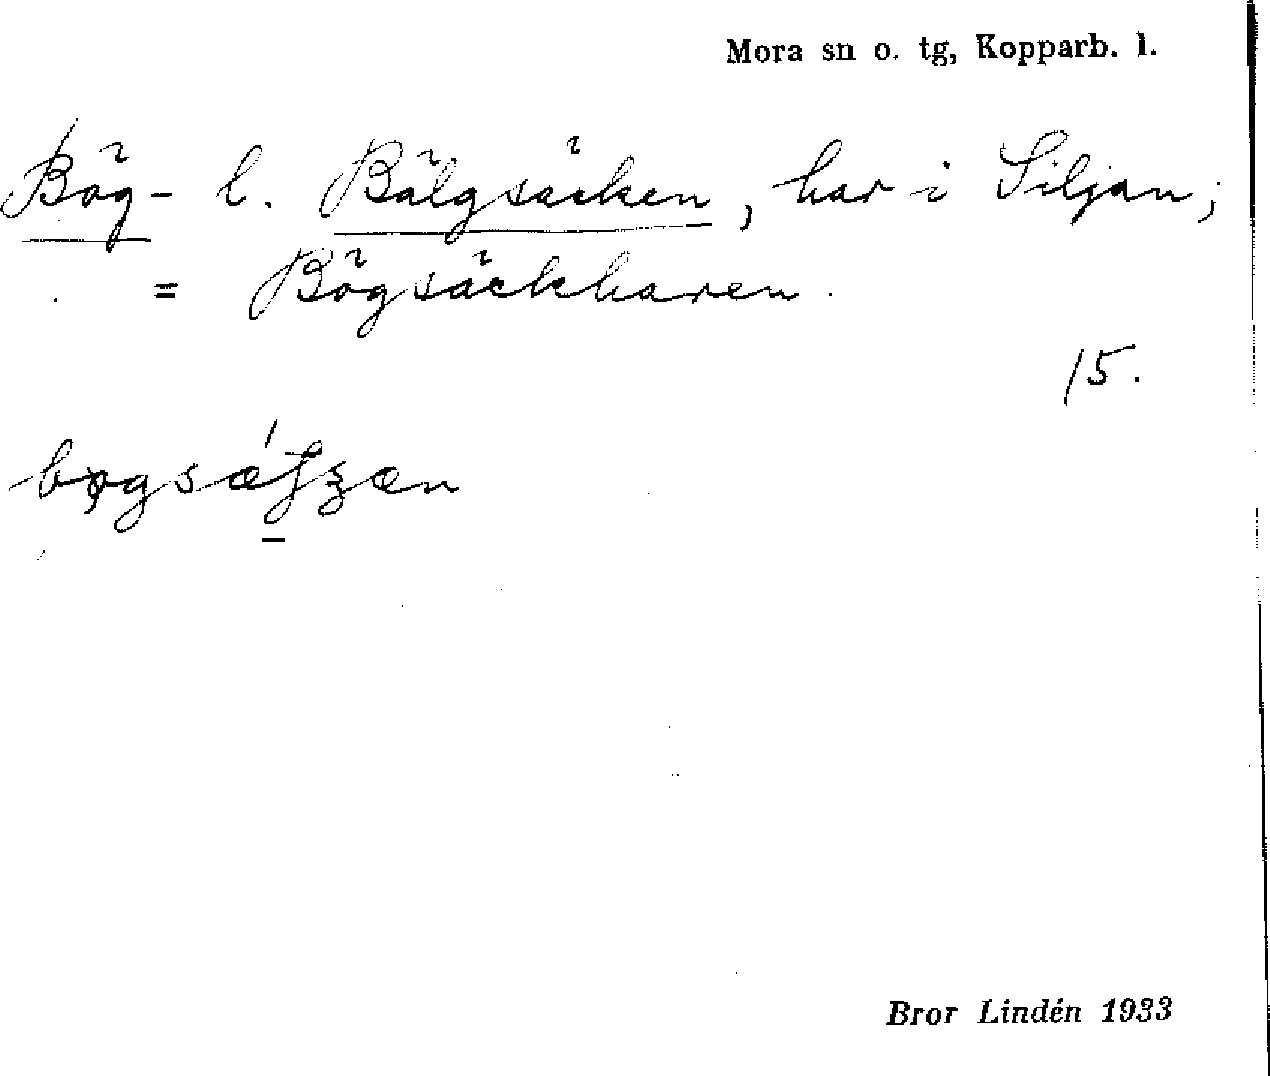 Mora sn o. tg, Kopparb. l.
Bög- l. Bälgsäcken, har i Siljan;
= Bögsäckharen.
15.
Bror Lindén 1933